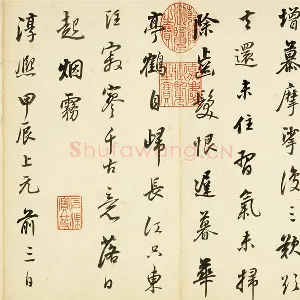 增慕摩挲復三歎欲
去還未住習氣未掃
除齒髮恨遲暮華
亭鶴自歸長江只東
注寂寥千古意落日
起烟霧
淳熙甲辰上元前三日
Shufawang.CN